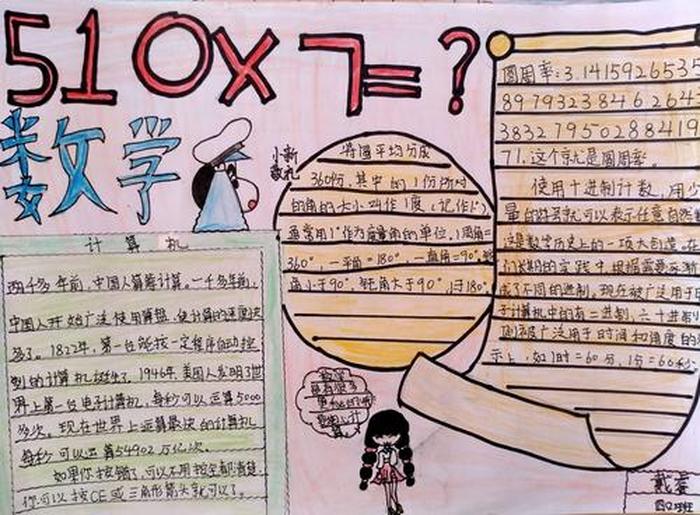 510×7=?
数学
小新
敬礼
将圆平均分成
360份,其中的1份所对
的角的大小叫作1度(记作1°)
通常用1°作为度量角的单位,1周角=
360°,一平角=180°,一直角=90°,锐
角小于90°,钝角大于90°,小于180°,
圆周率:3.1415926535
897932384626
3832795028841
71.这个就是圆周率。
使用十进制计数,用少
量的符号就可以表示任意自然
这是数学历史上的一项大创造,在
们长期的实践中,根据需要
了不同的进制。现在被广泛用于
子计算机中的有二进制,六十进制
则被广泛用于时间和角度的
示上,如1时=60分,1分=60秒.
计算机
两千多年前,中国人算筹计算。一千多年前,
中国人开始广泛使用算盘,使计算的速度快
多了。1822年,第一台能按一定程序自动控
制的计算机诞生了。1946年,美国人发明了世
界上第一台电子计算机,每秒可以运算5000
多次。现在世界上运算最快的计算机
每秒可以运算54902万亿次。
如果你按错了,可以不用按全部清楚,
你可以按CE或三角形箭头就可以了。
数学
四(2)班